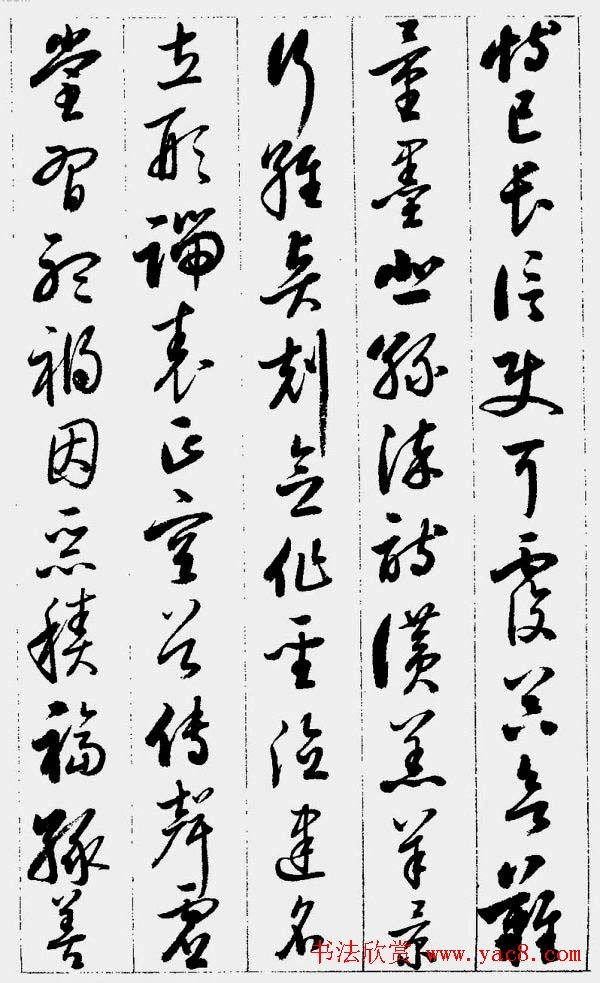 恃己長信使可覆器欲難
量墨悲絲染詩讚羔羊景
行維賢剋念作聖德建名
立形端表正空谷傳聲虛
堂習聽禍因惡積福緣善
书法欣赏 www.yac8.com